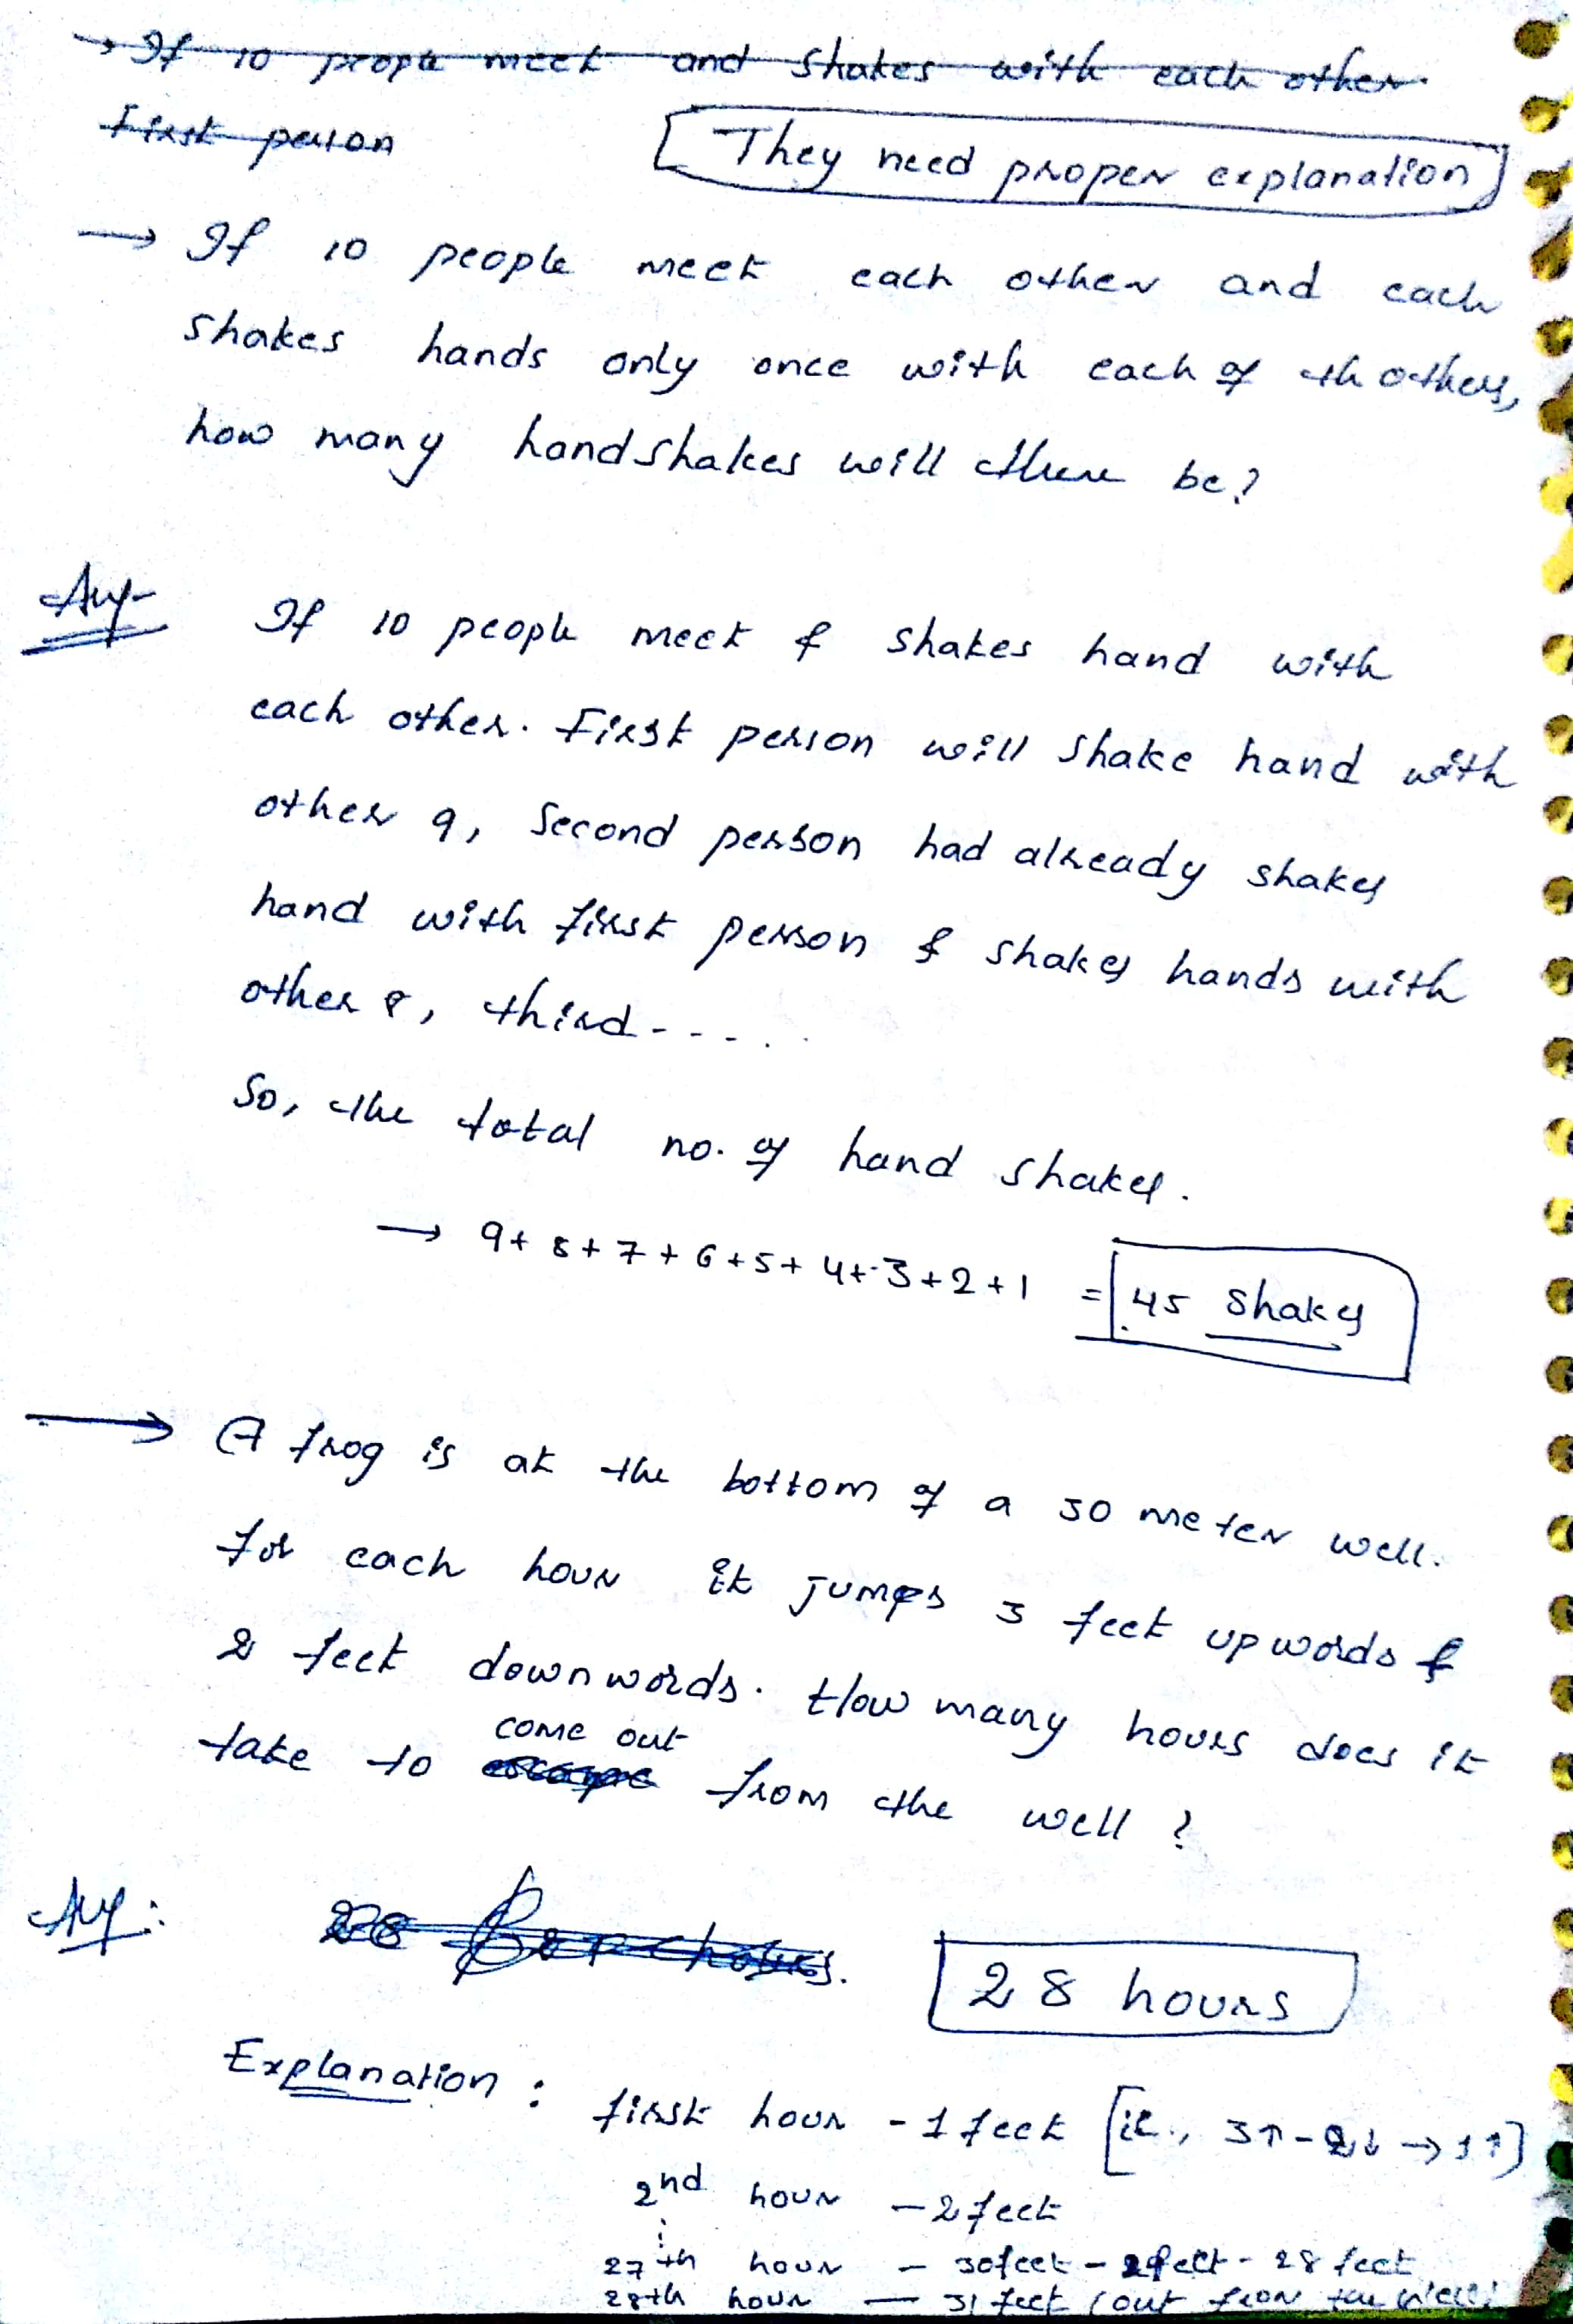 → If 10 people meet and shakes with each other.
First person
[They need proper explanation]
→ If 10 people meet each other and each
shakes hands only once with each of th others,
how many handshakes will there be?
Ans
If 10 people meet & shakes hand with
each other. First person will shake hand with
other 9, Second person had already shakes
hand with first person & shakes hands with
other 8, third-----
So, the total no. of hand shakes.
→ 9+8+7+6+5+4+3+2+1 = 45 Shakes
→ A frog is at the bottom of a 30 meter well.
For each hour it jumps 3 feet upwords &
2 feet downwords. How many hours does it
come out
take to escape from the well?
Ans:
28
28 hours
Explanation: first hour - 1 feet [ie., 3↑-2↓→1↑]
2nd hour - 2 feet
27th hour - 30feet - 2feet - 28 feet
28th hour — 31 feet (out from the well)